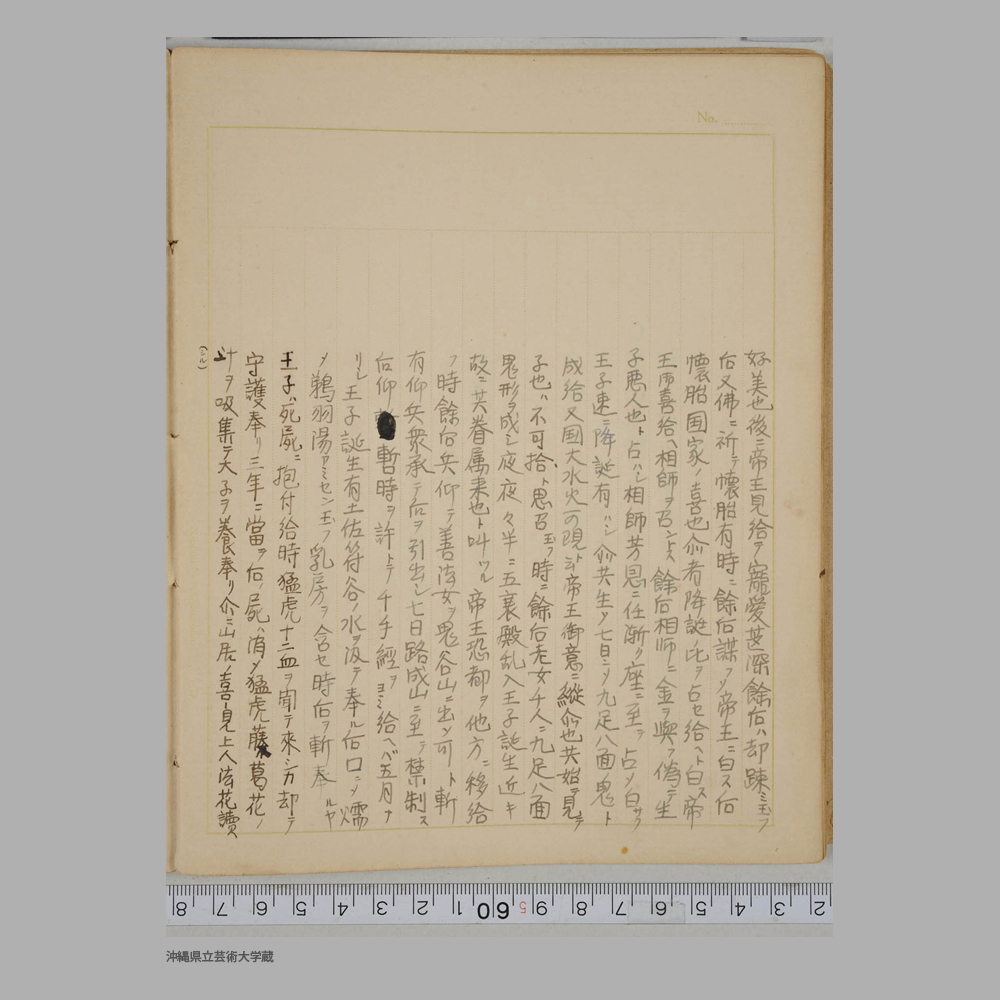 No.
好美也後ニ帝王見給テ寵愛甚深餘后ハ却踈ミ玉フ
后又佛ニ祈テ懐胎有時ニ餘后謀ヲ〆帝王ニ白ス后
懐胎国家ノ喜也尒者降誕ノ比ヲ占セ給ヘト白ス帝
王喜給ヘ相師ヲ召ントス餘后相師ニ金ヲ與ヲ偽テ生
子悪人也ト占ハシ相師芳恩ニ任漸ク座ニ至テ占〆白サク
王子速ニ降誕有ハシ尒共生テ七日ニ〆九足八面鬼ト
成給又国大水火可現ト云帝王御意ニ縦尒也共始テ見
子也ハ不可捨ト思召玉フ時ニ餘后老女千人ニ九足八面
鬼形ヲ成シ夜夜々半ニ五衰殿乱入王子誕生近キ
故ニ其眷属来也ト叫ツル帝王恐都ヲ他方ニ移給
フ時餘后兵仰テ善法女ヲ鬼谷山ニ出〆可ト斬
有仰兵衆承テ后ヲ引出シ七日路成山ニ至テ禁制ス
后仰暫時ヲ許トテ千手經ヲヨミ給ヘバ五月ナ
リシ王子誕生有土佐符谷ノ水ヲ汲テ奉ル后口ニ〆燸
メ鵜羽湯アミセン玉フ乳房ヲ含セ時后ヲ斬奉ルヤ
王子ハ死屍ニ抱付給時猛虎十二血ヲ聞テ來シカ却テ
守護奉リ三年ニ當ヲ后ノ屍ハ消〆猛虎藤葛花ノ
汁ヲ吸集テ太子ヲ養奉リ尒ニ山居ノ喜見上人法花讀
(シル)
8 7 6 5 4 3 2 1 60 5 9 8 7 6 5 4 3 2
沖縄県立芸術大学蔵